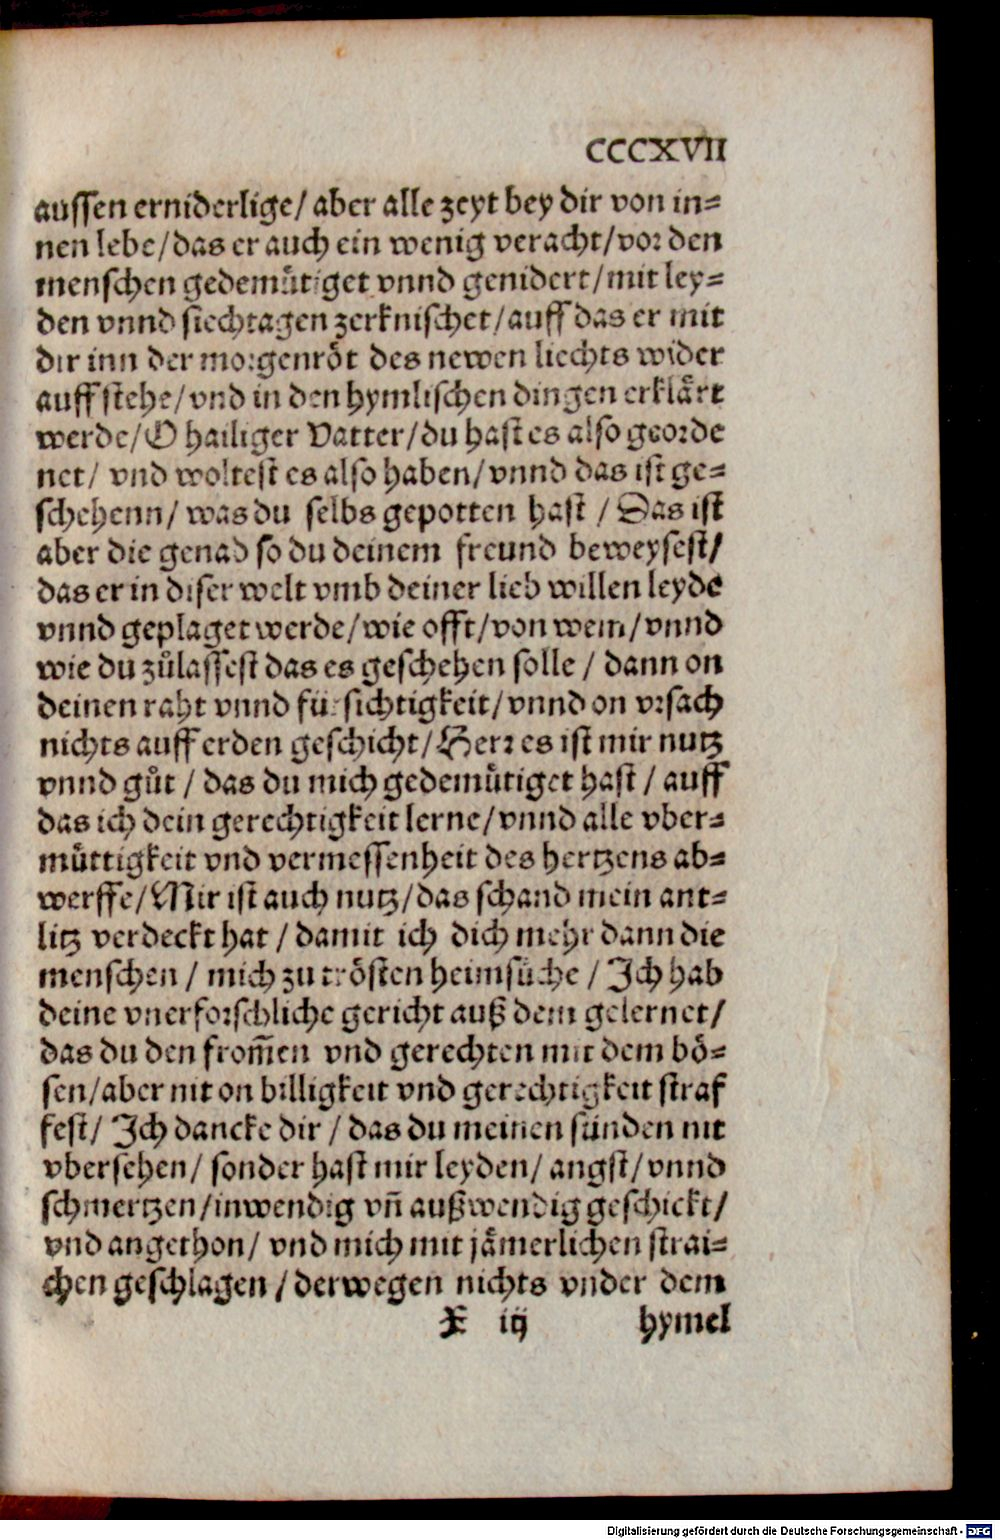 CCCXVII
aussen erniderlige/ aber alle zeyt bey dir von in=
nen lebe/ das er auch ein wenig veracht/ vor den
menschen gedemuͤtiget vnnd genidert/ mit ley=
den vnnd siechtagen zerknischet/ auff das er mit
dir inn der morgenroͤt des newen liechts wider
auff stehe/ vnd in den hymlischen dingen erklaͤrt
werde/ O hailiger Vatter/ du hast es also georde
net/ vnd woltest es also haben/ vnnd das ist ge=
schehenn/ was du selbs gepotten hast / Das ist
aber die genad so du deinem freund beweysest/
das er in diser welt vmb deiner lieb willen leyde
vnnd geplaget werde/ wie offt/ von wem/ vnnd
wie du zuͦlassest das es geschehen solle / dann on
deinen raht vnnd fürsichtigkeit/ vnnd on vrsach
nichts auff erden geschicht/ Herr es ist mir nutz
vnnd guͦt / das du mich gedemuͤtiget hast / auff
das ich dein gerechtigkeit lerne/ vnnd alle vber=
muͤttigkeit vnd vermessenheit des hertzens ab=
werffe/ Mir ist auch nutz/ das schand mein ant=
litz verdeckt hat / damit ich dich mehr dann die
menschen / mich zu troͤsten heimsuͤche / Ich hab
deine vnerforschliche gericht auß dem gelernet/
das du den from̃en vnd gerechten mit dem boͤ=
sen/ aber nit on billigkeit vnd gerechtigkeit straf
fest/ Ich dancke dir / das du meinen sünden nit
vbersehen/ sonder hast mir leyden/ angst/ vnnd
schmertzen/ inwendig vñ außwendig geschickt/
vnd angethon/ vnd mich mit jaͤmerlichen strai=
chen geschlagen / derwegen nichts vnder dem
X iij hymel
Digitalisierung gefördert durch die Deutsche Forschungsgemeinschaft - DFG